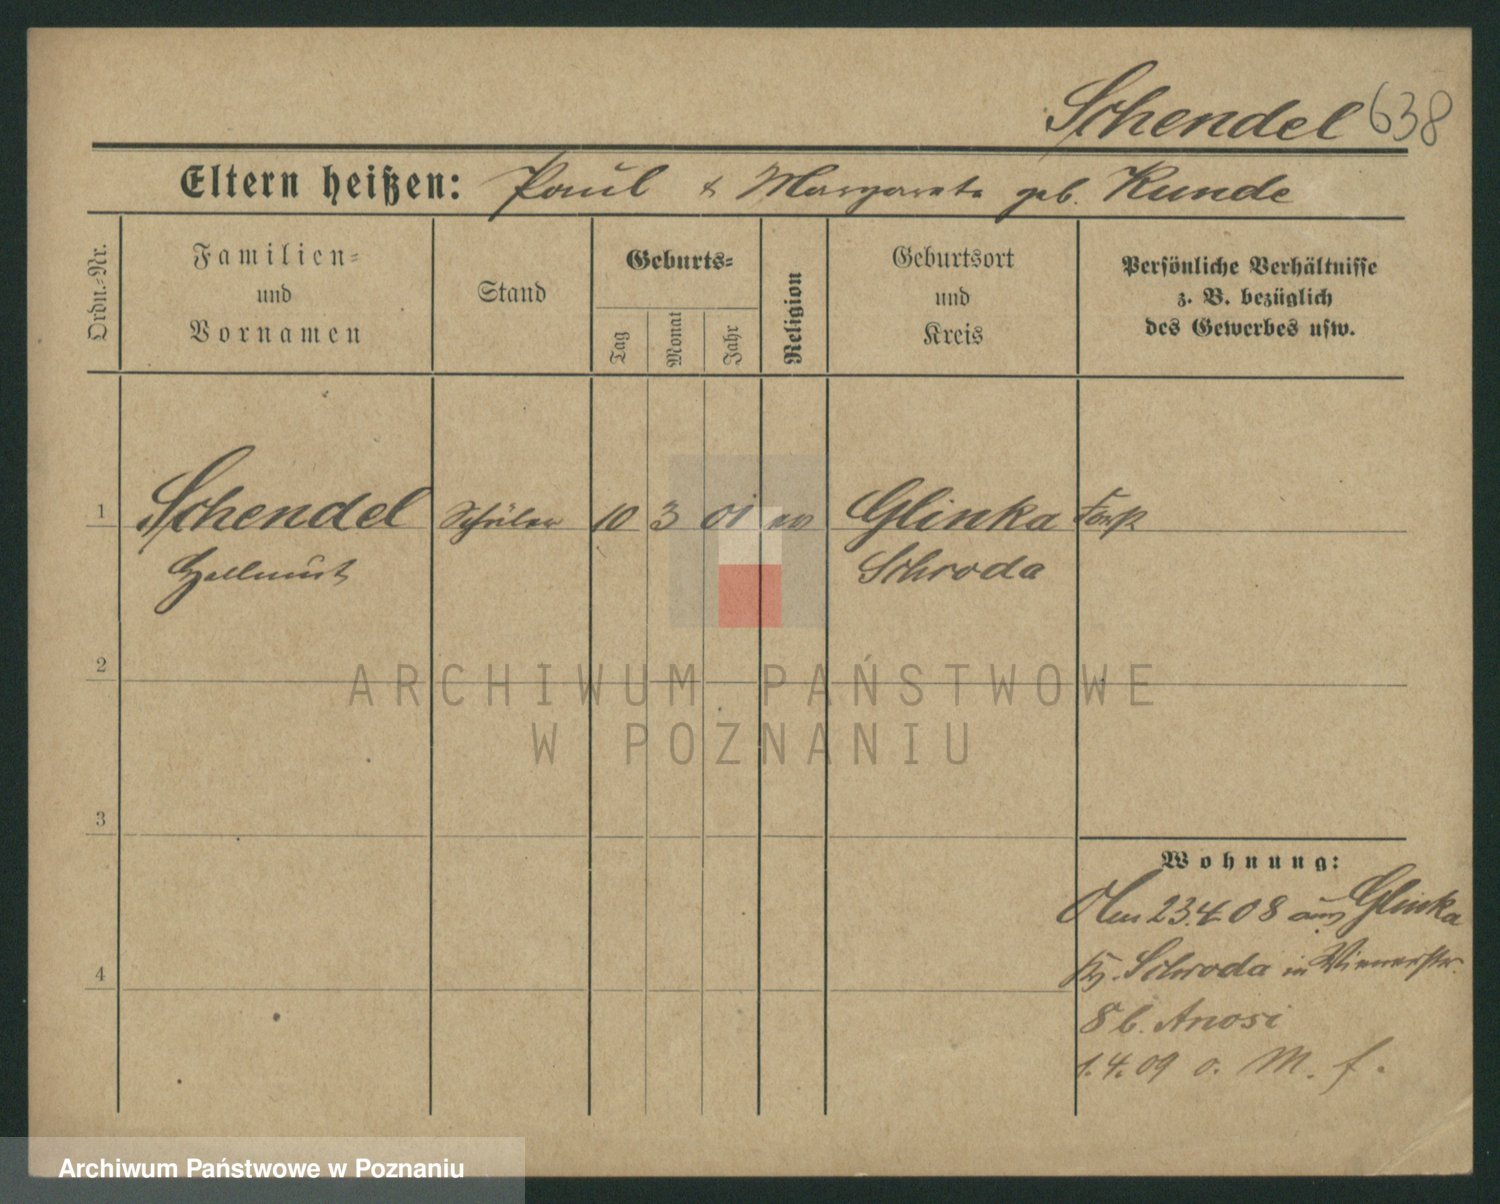 Schendel 638
Eltern heißen: Paul & Margarete geb. Kunde
Ordn.-Nr.
Familien-
und
Vornamen
Stand
Geburts-
Tag
Monat
Jahr
Religion
Geburtsort
und
Kreis
Persönliche Verhältnisse
z. B. bezüglich
des Gewerbes usw.
1 Schendel Schüler 10 3 01 ev Glinka
Hellmut Schroda
2
ARCHIWUM PAŃSTWOWE
W POZNANIU
3
Wohnung:
23.4.08 aus Glinka
4
Kr. Schroda in Wienerstr.
8 b. Anosi
1.4.09 o. M. f.
Archiwum Państwowe w Poznaniu